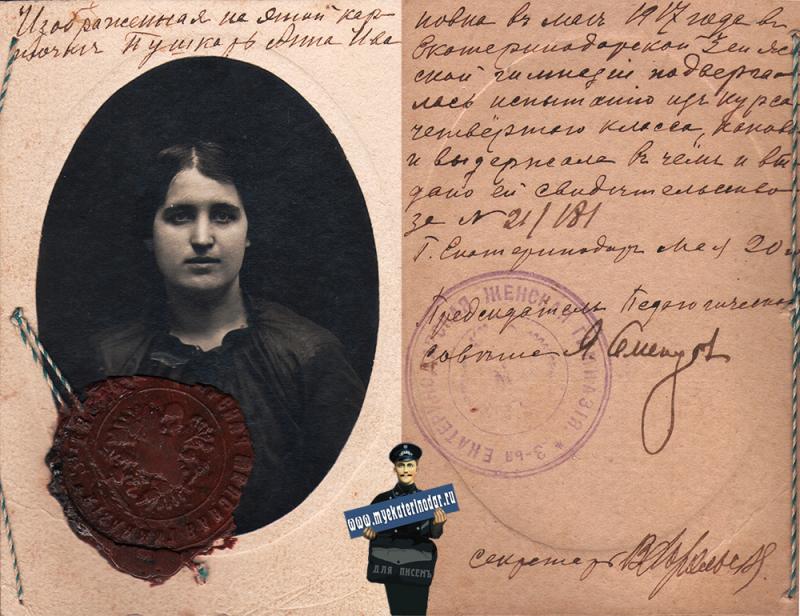 Изображенная на этой кар-
точкѣ Пушкарь Анна Ива
новна въ маѣ 1917 года въ
Екатеринодарской 3 ей жен
ской гимназіи подверга-
лась испытанію изъ курса
четвёртого класса, каковое
и выдержала въ чемъ и вы
дано ей свидѣтельство
за № 21/181
Г. Екатеринодаръ Мая 20
Председатель Педагогическаго
Совѣта
секретарь
ЖЕНСКАЯ ГИМНАЗІЯ * 3-ья ЕКАТЕРИНОДАРСКАЯ
www.myekaterinodar.ru
ДЛЯ ПИСЕМЪ